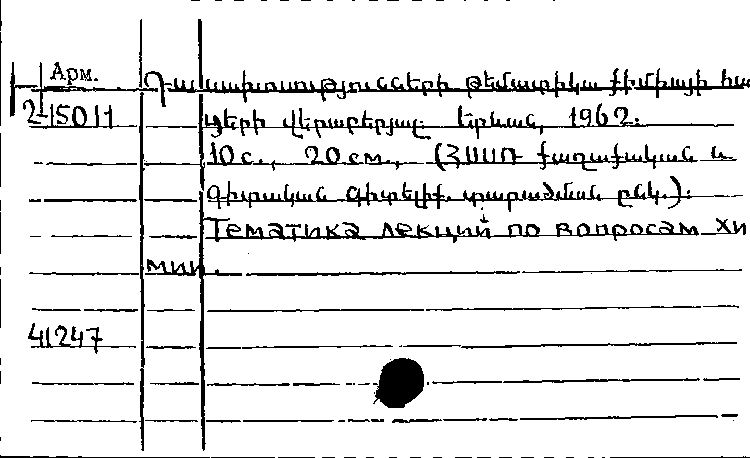 Арм.
Դասախոսությունների թեմատիկա քիմիայի հար
2-15011
ցերի վերաբերյալ Երևան, 1962.
10 с., 20 см., (ՀՍՍՌ քաղաքական և
գիտական գիտելիք. տարածման ընկ.):
Тематика лекций по вопросам хи
мии.
41247